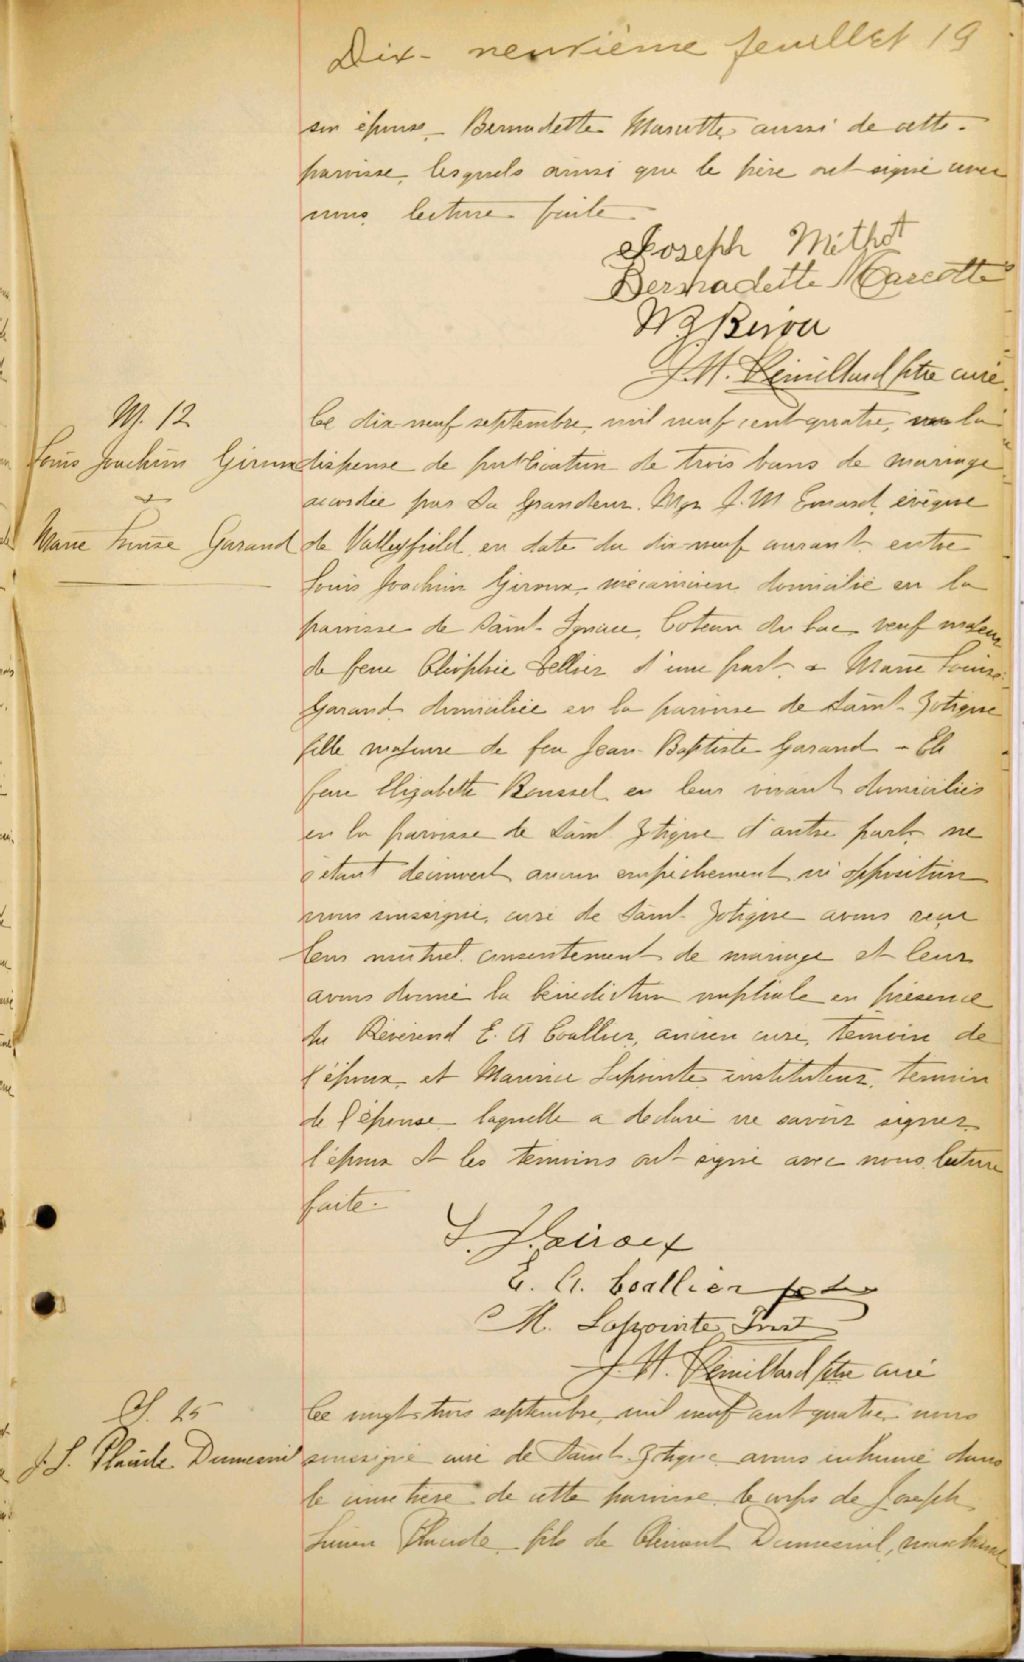 Dix-neuvième feuillet 19
son épouse Bernadette Marcotte aussi de cette
paroisse, lesquels ainsi que le père ont signé avec
nous lecture faite
Joseph Methot
Bernadette Marcotte
J. H. Remillard ptre curé.
M. 12
Louis Joachim Giroux
&
Marie Louise Garand
Ce dix-neuf septembre, mil neuf cent quatre, vu la
dispense de publication de trois bans de mariage
accordée par Sa Grandeur Mgr J. M Emard, évêque
de Valleyfield en date du dix-neuf courant entre
Louis Joachim Giroux mécanicien domicilié en la
paroisse de Saint Ignace, Coteau du Lac veuf majeur
de feue Cléophée Tellier d'une part & Marie Louise
Garand domiciliée en la paroisse de Saint Zotique
fille majeure de feu Jean-Baptiste Garand & de
feue Elizabeth Roussel en leur vivant domiciliés
en la paroisse de Saint Zotique d'autre part, ne
s'étant découvert aucun empêchement ni opposition
nous soussigné, curé de Saint Zotique avons reçu
leur mutuel consentement de mariage et leur
avons donné la bénédiction nuptiale en présence
du Révérend E. A Coallier, ancien curé, témoin de
l'époux, et Maurice Lapointe instituteur, témoin
de l'épouse laquelle a déclaré ne savoir signer
l'époux et les témoins ont signé avec nous lecture
faite.
L. J. Giroux
E. A. Coallier ptre
M. Lapointe Inst
J. H. Remillard ptre curé
S. 25
J. L. Placide Dumesnil
Ce vingt-trois septembre, mil neuf cent quatre nous
soussigné curé de Saint Zotique avons inhumé dans
le cimetière de cette paroisse, le corps de Joseph
Lucien Placide fils de Clément Dumesnil, marchand